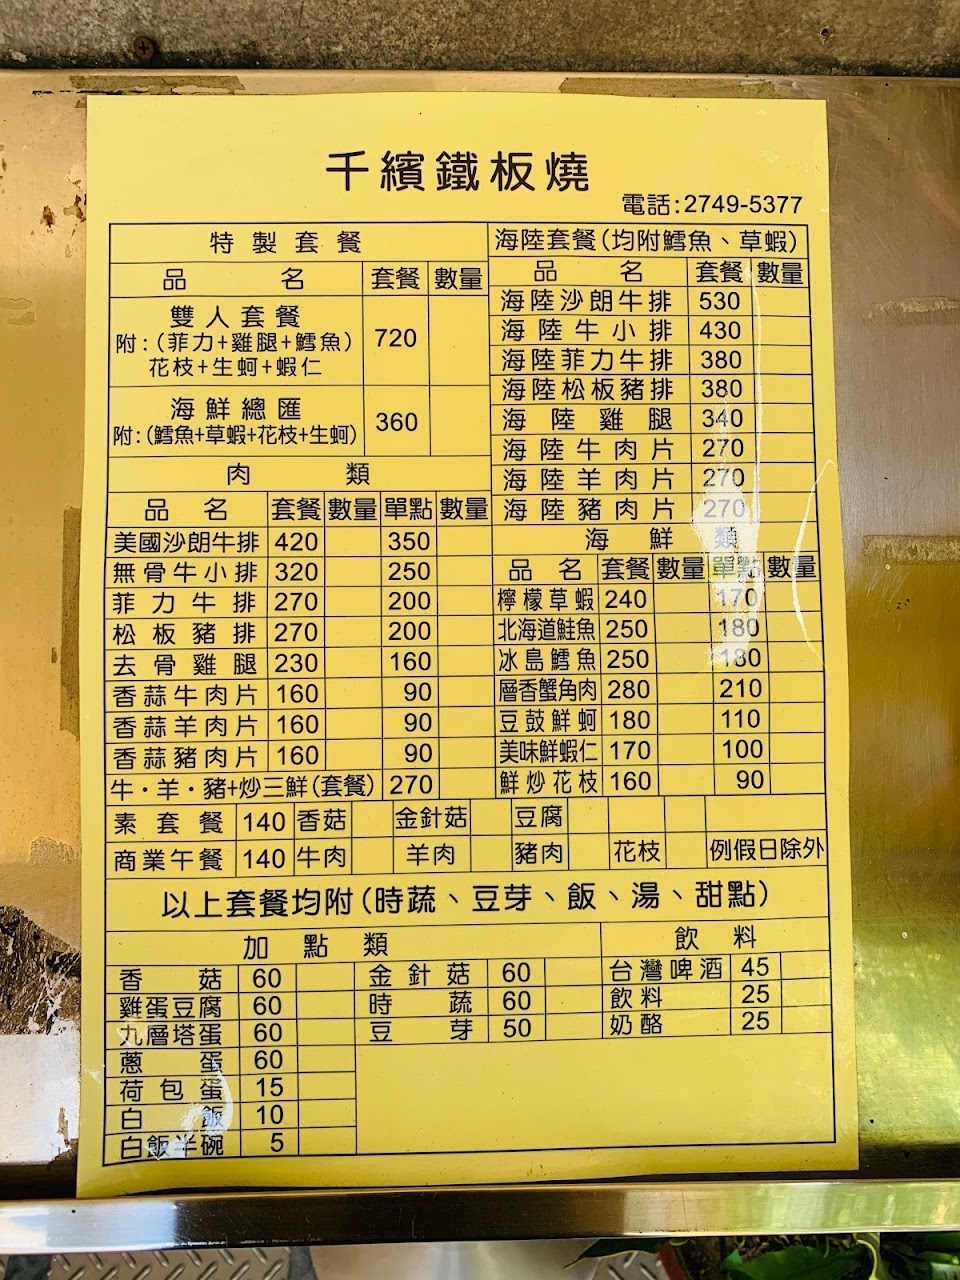 千繽鐵板燒
電話:2749-5377
特製套餐
品名 套餐 數量
雙人套餐
附:(菲力+雞腿+鱈魚) 720
花枝+生蚵+蝦仁
海鮮總匯
附:(鱈魚+草蝦+花枝+生蚵) 360
肉類
品名 套餐 數量 單點 數量
美國沙朗牛排 420 350
無骨牛小排 320 250
菲力牛排 270 200
松板豬排 270 200
去骨雞腿 230 160
香蒜牛肉片 160 90
香蒜羊肉片 160 90
香蒜豬肉片 160 90
牛·羊·豬+炒三鮮(套餐) 270
海陸套餐(均附鱈魚、草蝦)
品名 套餐 數量
海陸沙朗牛排 530
海陸牛小排 430
海陸菲力牛排 380
海陸松板豬排 380
海陸雞腿 340
海陸牛肉片 270
海陸羊肉片 270
海陸豬肉片 270
海鮮類
品名 套餐 數量 單點 數量
檸檬草蝦 240 170
北海道鮭魚 250 180
冰島鱈魚 250 180
層香蟹角肉 280 210
豆鼓鮮蚵 180 110
美味鮮蝦仁 170 100
鮮炒花枝 160 90
素套餐 140 香菇 金針菇 豆腐
商業午餐 140 牛肉 羊肉 豬肉 花枝 例假日除外
以上套餐均附(時蔬、豆芽、飯、湯、甜點)
加點類
香菇 60 金針菇 60
雞蛋豆腐 60 時蔬 60
九層塔蛋 60 豆芽 50
蔥蛋 60
荷包蛋 15
白飯 10
白飯半碗 5
飲料
台灣啤酒 45
飲料 25
奶酪 25